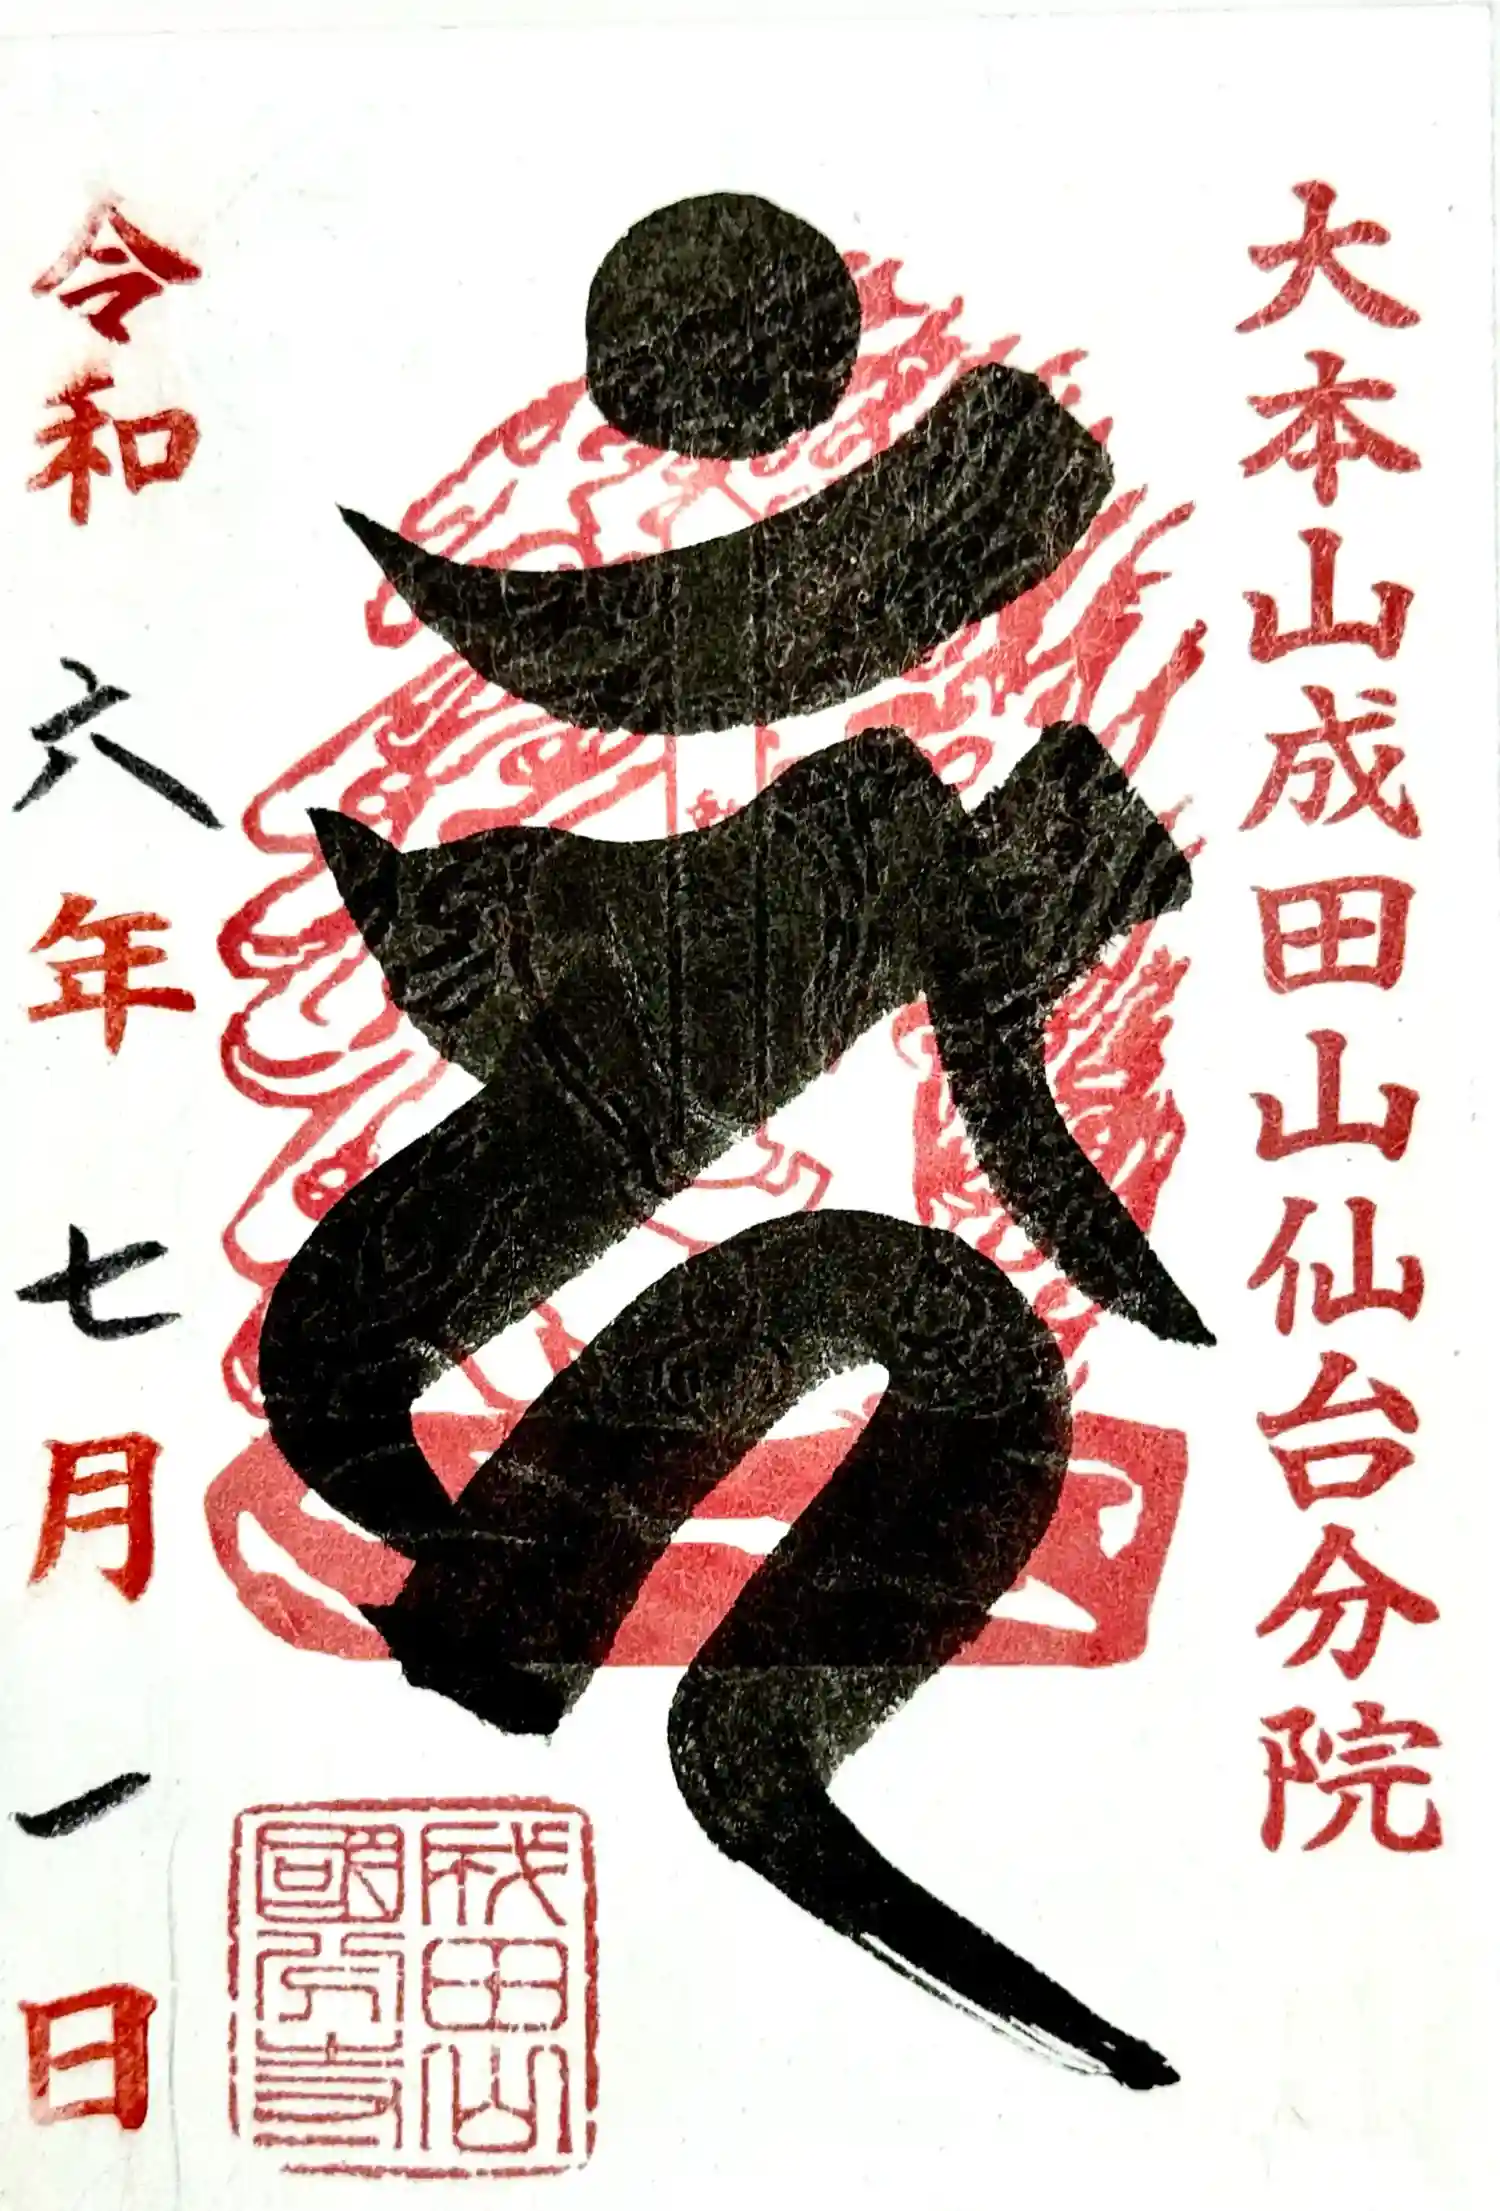 大本山成田山仙台分院
成田山
國分寺
令和六年七月一日